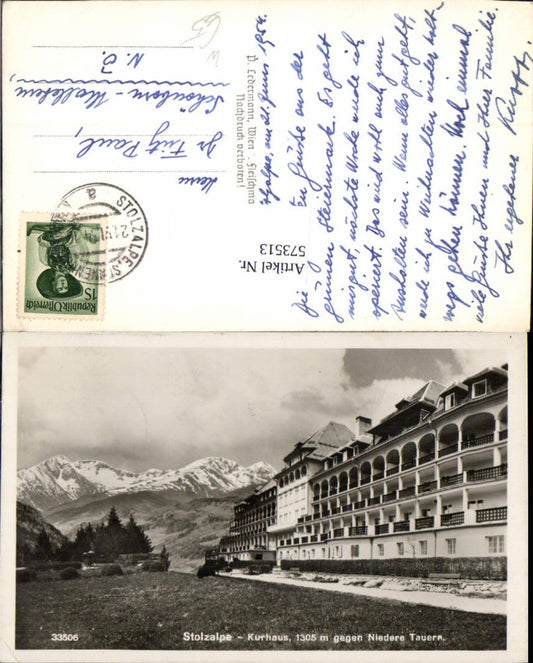 Stolzalpe, am 21. Juni 1954.
Ein Grüße aus der
grünen Steiermark. Es geht
mir gut, nächste Woche werde ich
operiert. Das wird wohl auch zum
Aushalten sein. Wenn alles gut geht,
werde ich zu Weihnachten wieder
gehen können. Noch einmal
viele Grüße Ihnen und Ihrer Familie.
Ihr ergebener
Herrn
Dr. Fritz Paul,
Schönborn - Mallebern
N.Ö.
P. Ledermann, Wien - Fleischma
Nachdruck verboten!
Artikel Nr.
573513
STOLZALPE
a
1S
Republik Österreich
33506
Stolzalpe - Kurhaus, 1305 m gegen Niedere Tauern.